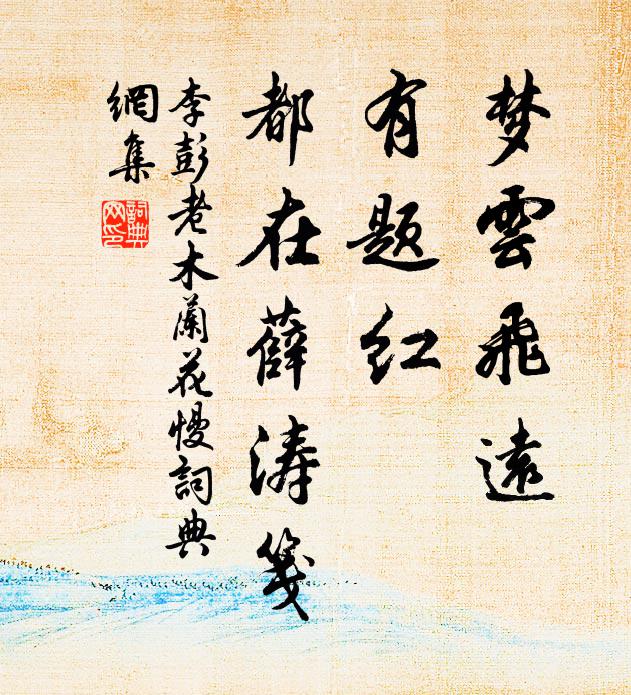 梦雲飛遠
有题红
都在薛涛笺
李彭老木蘭花慢詞典
網集
詞典
网印